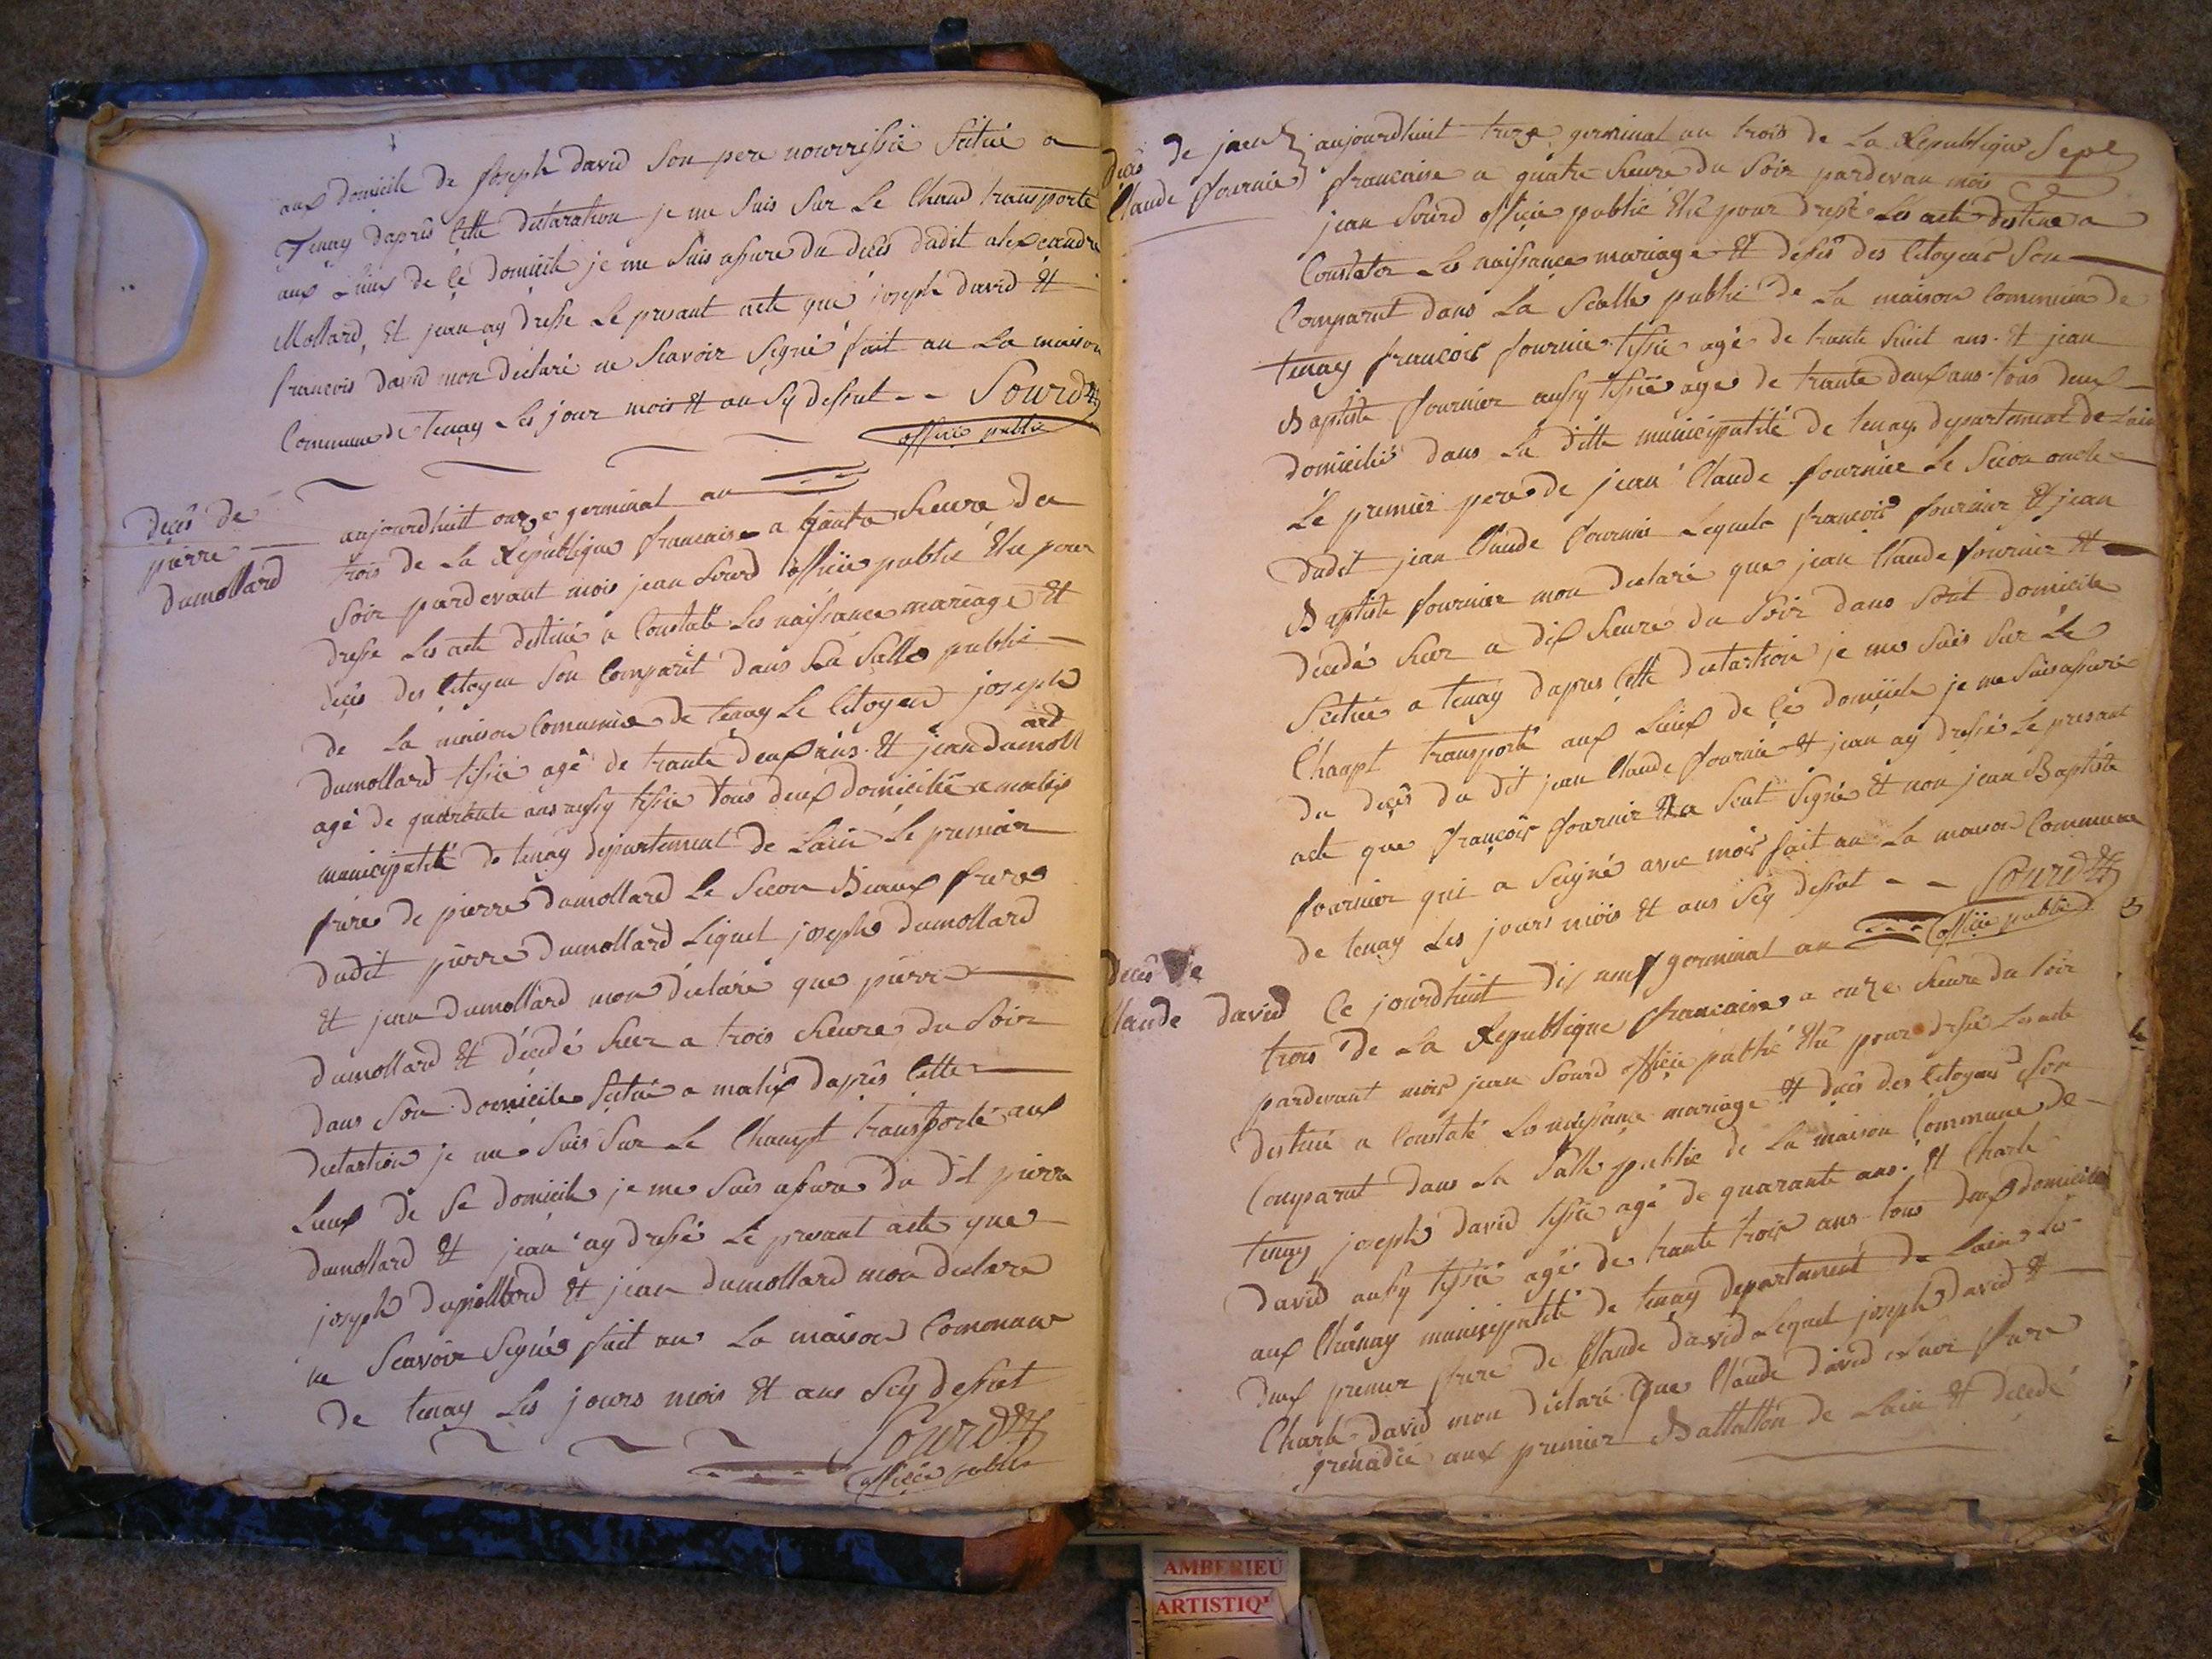 aux domicile de joseph david son pere nourrissié scitué a
Tenay daprès cette declaration je me suis sur le Chand transporté
aux Lieux de cé domicile je me suis assure du decès dudit alexeandre
Mollard, et jean ay dresse le presant acte que joseph david et
francois david mon declaré ne scavoir segné fait au La maison
Commune de tenay Les jour mois et an sy dessut -- Sourd
officié public
decès de
pierre
dumollard
aujourdhuit onze germinal an
trois de La Republique francaise a heure du
soir pardevant mois jean Sourd officié publié élu pour
dresse Les acte destiné a Constaté Les naissance mariage et
decès des Citoyen son Comparut dans La salle public
de La maison Commune de tenay Le Citoyen joseph
dumollard tissié agé de trante deux ans et jean dumollard
agé de quarante ans aussy tissié tous deux domicilié a malix
municipalité de tenay departement de Lain Le premier
frère de pierre dumollard Le secon Beaux frere
dudit pierre dumollard Lequel joseph dumollard
et jean dumollard mon declaré que pierre
dumollard et décédé hier a trois heure du soir
dans son domicile scitué a malix daprès cette
declartion je me suis sur Le Champt transporté aux
Lieux de se domicile je me suis assure du dit pierre
dumollard et jean ay dressé Le presant acte que
joseph dumollard et jean dumollard mon declare
ne scavoir segné fait au La maison Commune
de tenay Les jours mois et ans sey dessut
Sourd
officié public
decès de jean
Claude fournié
aujourdhuit treze germinal an trois de La Republique Sept
francaise a quatre heure du soir pardevan mois
jean Sourd officié publié élu pour dressé Les acte destiné a
Constater Les naissance mariage et decès des Citoyens son
Comparut dans La Scalle public de La maison Commune de
tenay francois fournié tissié agé de trante huit ans et jean
Baptiste fournier aussy tissié age de trante deux ans tous deux
domicilié dans La ditte municipalité de tenay departement de Lain
Le premier pere de jean Claude fournié Le secon oncle
dudit jean Claude fournié Lequele francois fournier et jean
Baptiste fournier mon declaré que jean Claude fournier et
décédé hier a dix heure du soir dans sont domicile
scitué a tenay dapres cette declartion je me suis sur Le
Champt transporté aux Lieux de cé domicile je me suis assuré
du decès du dit jean Claude fournié et jean ay dressé Le presant
acte que francois fournié seut segné et non jean Baptiste
fournier qui a seigné avec mois fait au La maison Commune
de tenay Les jours mois et ans sey dessut -- Sourd
officié public
decès de
Claude david
Ce jourdhuit dix neuf germinal an
trois de La Republique francaise a onze heure du soir
pardevant mois jean Sourd officié publié élu pour dressé Les acte
destiné a Constaté Les naissance mariage et decès des Citoyens son
Comparut dans La salle public de La maison Commune de
tenay joseph david tissié agé de quarante ans et Charle
david aussy tissié agé de trante trois ans tous deux domicilié
aux Chanay municippalité de tenay departement de Lain Les
deux premier frere de Claude david Lequel joseph david et
Charle david mon declaré que Claude david Leur frere
grenadié aux premier Battallon de Lain et décédé
AMBERIEU
ARTISTIQ'